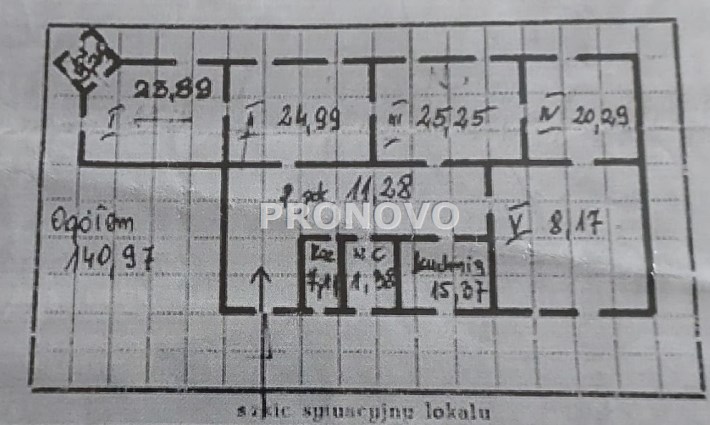 23,89
I
II 24,99
III 25,25
IV 20,29
11,28
PRONOVO
V 8,17
Ogółem
140,97
WC
1,38
kuchnia
15,37
szkic sytuacyjny lokalu